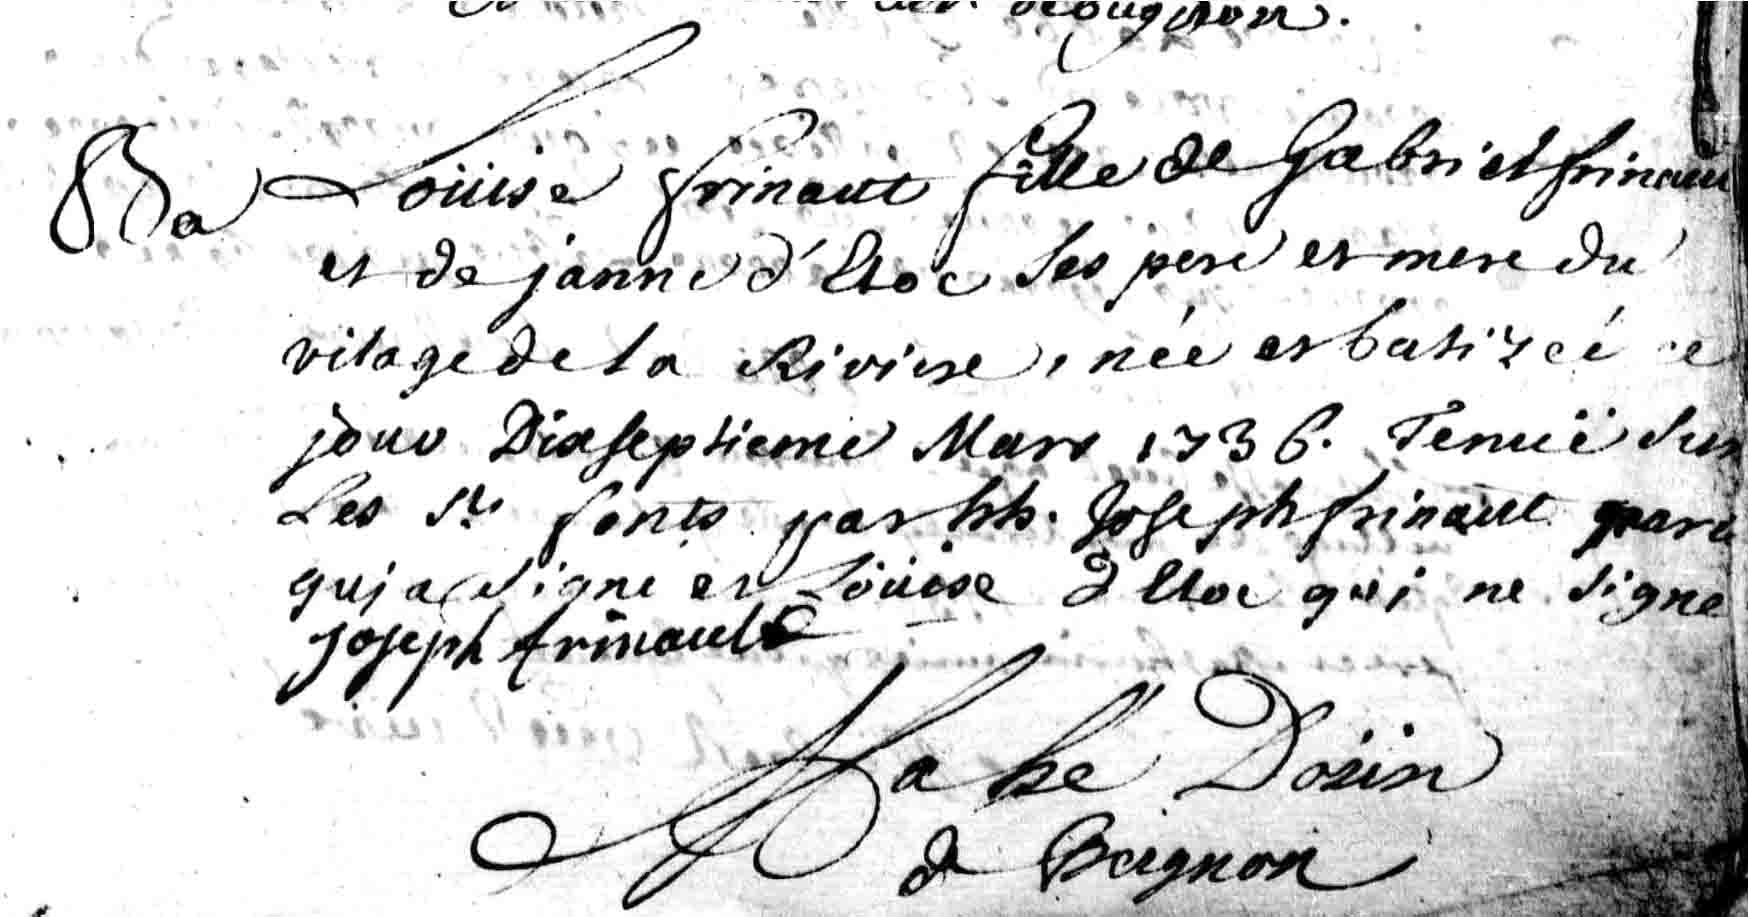 de Beignon.
Ba Loüise frinaut fille de Gabriel frinaut
et de janne d'Etoc Ses pere et mere du
vilage de la Riviere, née et batizeé ce
jour Dixseptieme Mars 1736. Tenüe Sur
Les Sts fonts par hh. Joseph frinaut
qui a Signé et Loüise d'Etoc qui ne Signe
joseph frinault
de Beignon